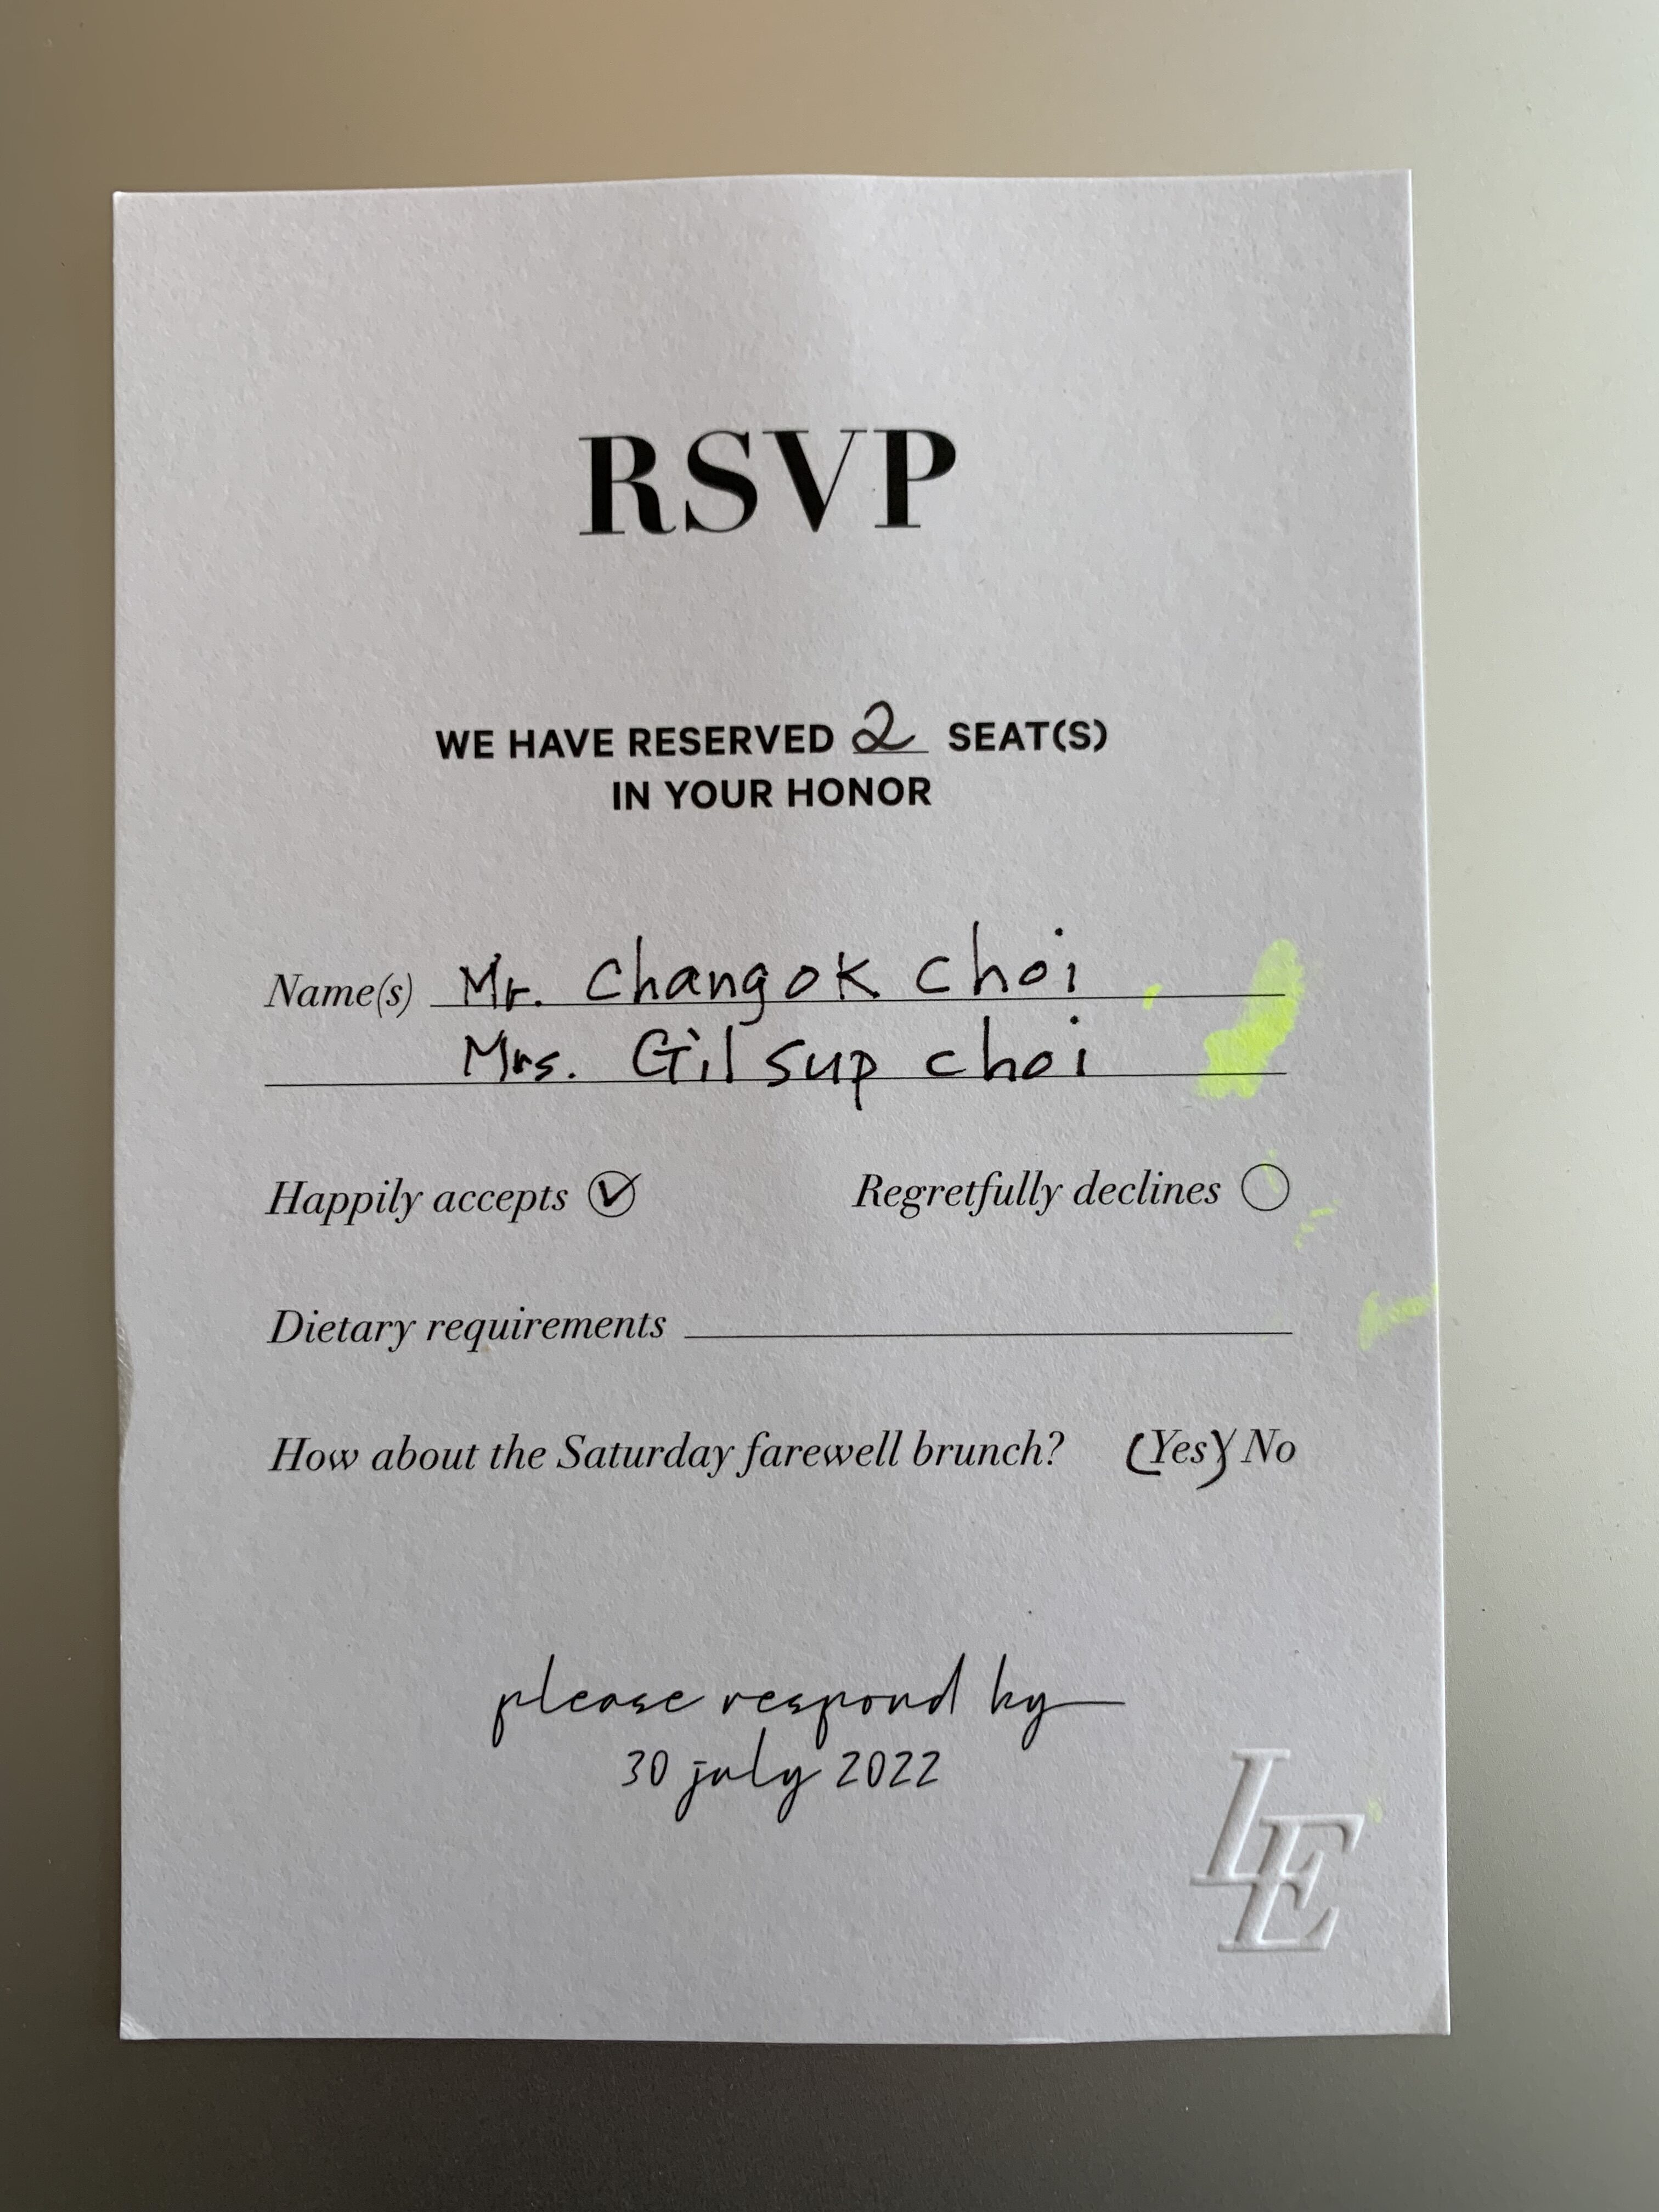 RSVP
WE HAVE RESERVED 2 SEAT(S)
IN YOUR HONOR
Name(s) Mr. Changok Choi
Mrs. Gil sup choi
Happily accepts Regretfully declines
Dietary requirements
How about the Saturday farewell brunch? (Yes) No
please respond by
30 july 2022
LE